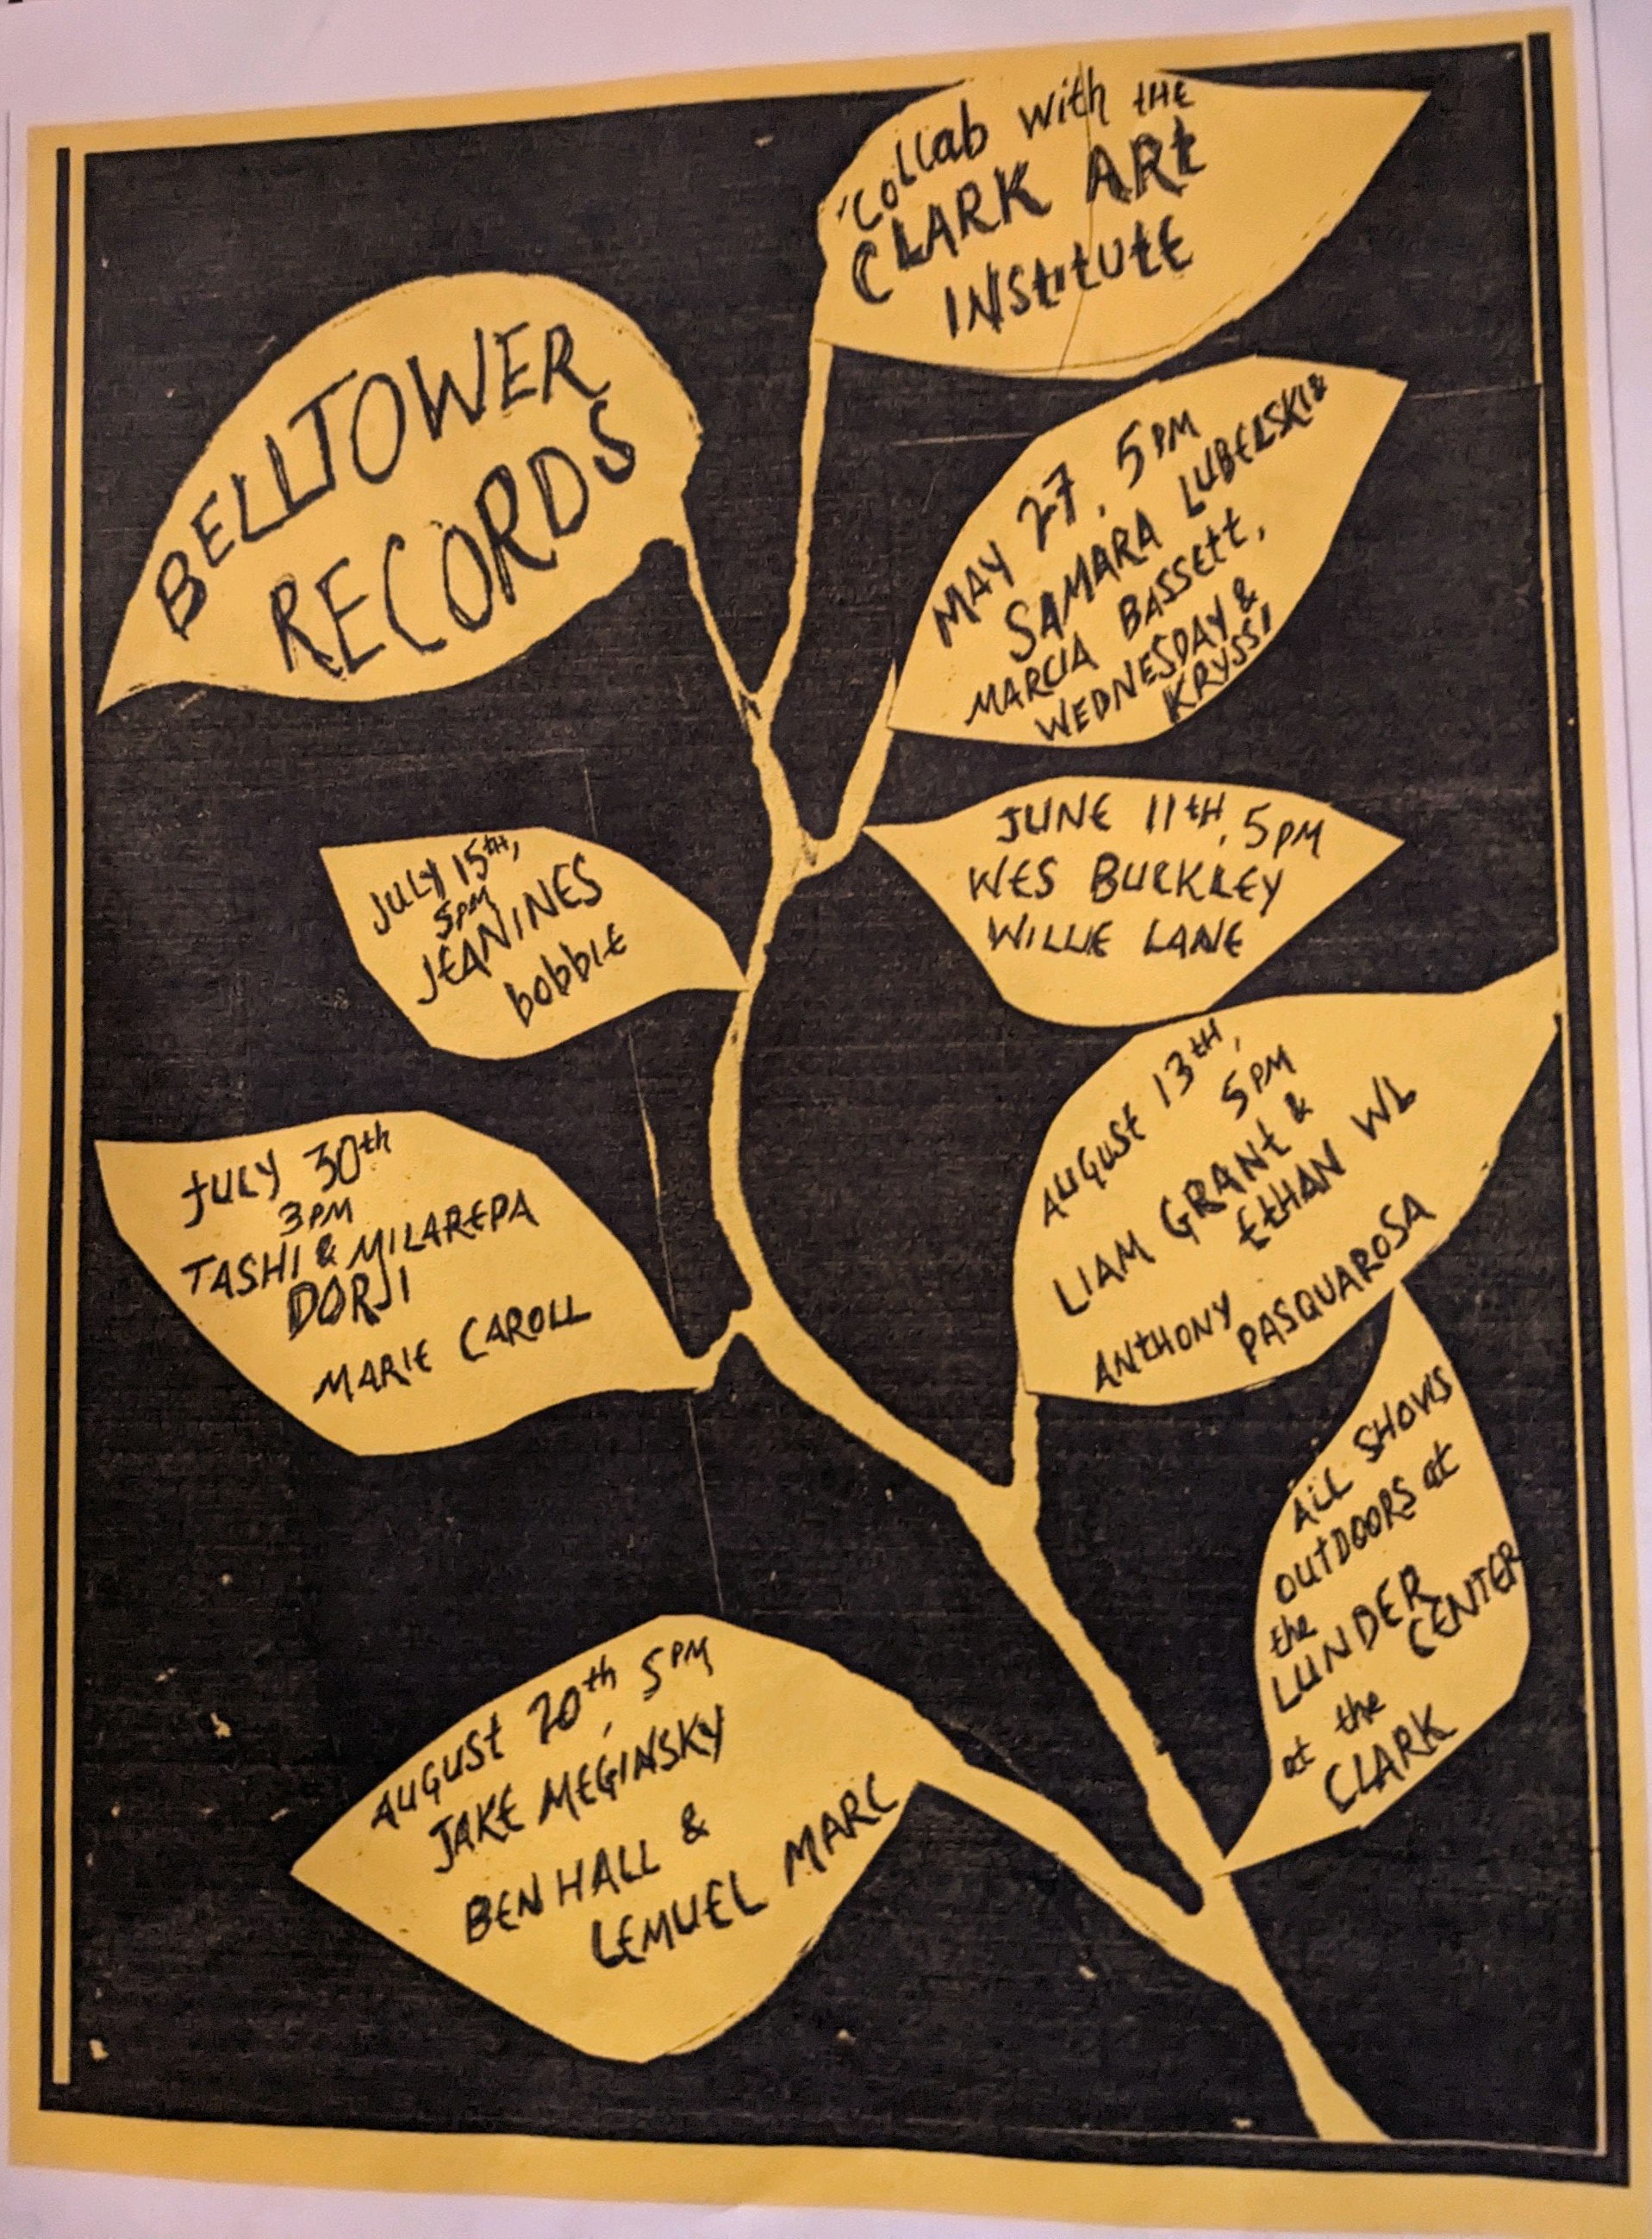 BELLTOWER
RECORDS
Collab with the
CLARK ARt
INStitUtE
MAY 27, 5PM
SAMARA LUBELSKI &
MARCIA BASSEtt,
WEDNESDAY &
KRYSSI
JUNE 11tH, 5PM
WES BUCKLEY
WILLIE LANE
JULY 15th,
5PM
JEANINES
bobbie
JULY 30th
3PM
TASHI & MILAREPA
DORJI
MARIE CAROLL
AUGUSt 13tH,
5PM
LIAM GRANt &
EtHAN WL
ANtHONY
PASQUAROSA
ALL SHOWS
OUtDOORS at
the
LUNDER
CENTER
at the
CLARK
AUGUSt 20th, 5PM
JAKE MEGINSKY
BEN HALL &
LEMUEL MARC